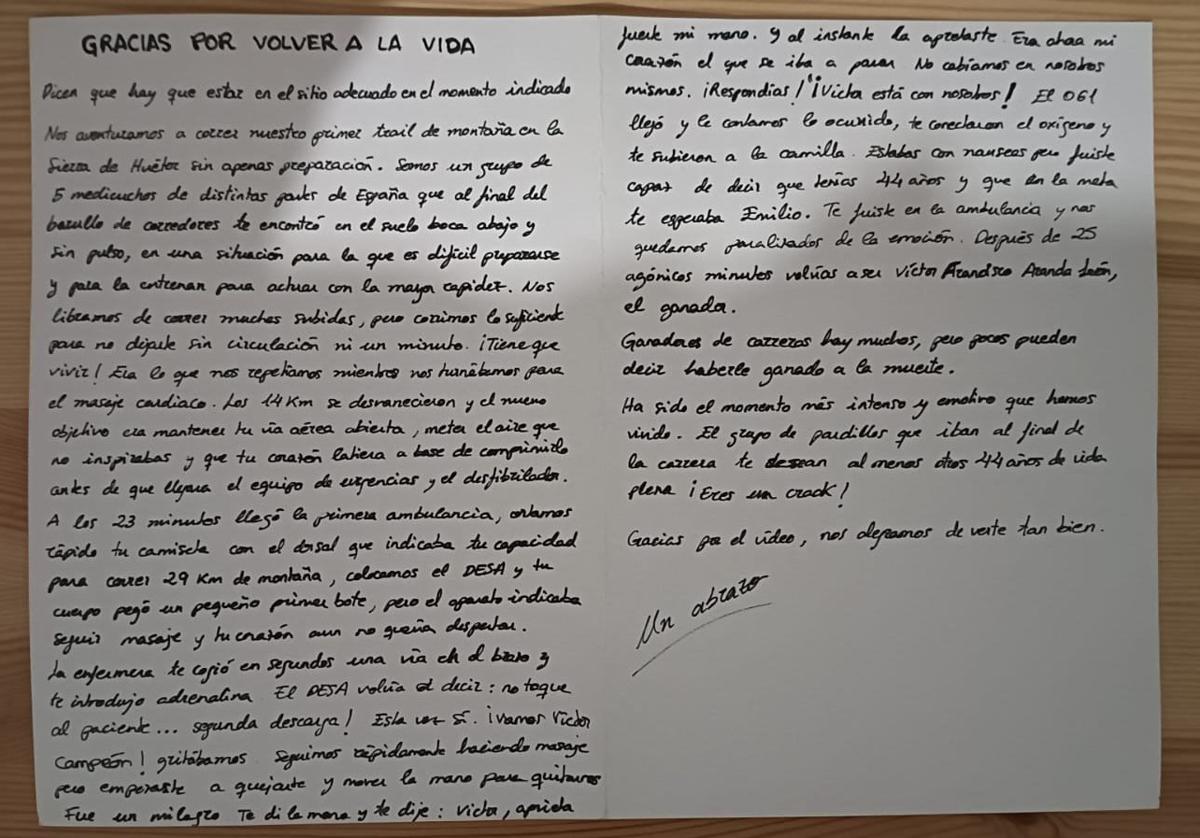 GRACIAS POR VOLVER A LA VIDA
Dicen que hay que estar en el sitio adecuado en el momento indicado
Nos aventuramos a correr nuestro primer trail de montaña en la
Sierra de Huétor sin apenas preparación. Somos un grupo de
5 medicuchos de distintas partes de España que al final del
barullo de corredores te encontró en el suelo boca abajo y
sin pulso, en una situación para la que es difícil prepararse
y para la entrenan para actuar con la mayor rapidez. Nos
libramos de correr muchas subidas, pero corrimos lo suficiente
para no dejarte sin circulación ni un minuto. ¡Tiene que
vivir! Era lo que nos repetíamos mientras nos turnábamos para
el masaje cardiaco. Los 14 Km se desvanecieron y el nuevo
objetivo era mantener tu vía aérea abierta, meter el aire que
no inspirabas y que tu corazón latiera a base de comprimirlo
antes de que llegara el equipo de urgencias y el desfibrilador.
A los 23 minutos llegó la primera ambulancia, cortamos
rápido tu camiseta con el dorsal que indicaba tu capacidad
para correr 29 Km de montaña, colocamos el DESA y tu
cuerpo pegó un pequeño primer bote, pero el aparato indicaba
seguir masaje y tu corazón aun no quería despertar.
La enfermera te cogió en segundos una vía en el brazo y
te introdujo adrenalina. El DESA volvía a decir: no toque
al paciente... segunda descarga! Esta vez sí. ¡Vamos Víctor
Campeón! gritábamos. Seguimos rápidamente haciendo masaje
pero empezaste a quejarte y mover la mano para quitarnos
Fue un milagro Te di la mano y te dije: Victor, aprieta
fuerte mi mano. Y al instante la apretaste. Era ahora mi
corazón el que se iba a parar No cabíamos en nosotros
mismos. ¡Respondías! "¡Victor está con nosotros! El 061
llegó y le contamos lo ocurrido, te conectaron el oxígeno y
te subieron a la camilla. Estabas con nauseas pero fuiste
capaz de decir que tenías 44 años y que en la meta
te esperaba Emilio. Te fuiste en la ambulancia y nos
quedamos paralizados de la emoción. Después de 25
agónicos minutos volvías a ser Víctor Francisco Aranda León,
el ganador.
Ganadores de carreras hay muchos, pero pocos pueden
decir haberle ganado a la muerte.
Ha sido el momento más intenso y emotivo que hemos
vivido. El grupo de pardillos que iban al final de
la carrera te desean al menos otros 44 años de vida
plena ¡Eres un crack!
Gracias por el vídeo, nos alegramos de verte tan bien.
Un abrazo